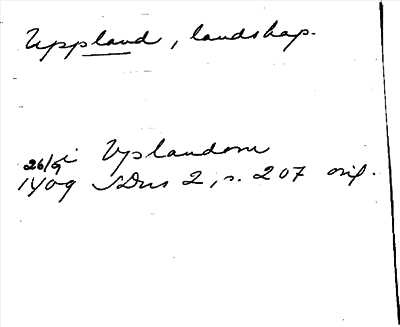 Uppland, landskap.
i Vplandom
26/9 1409 SDns 2, s. 207 orig.